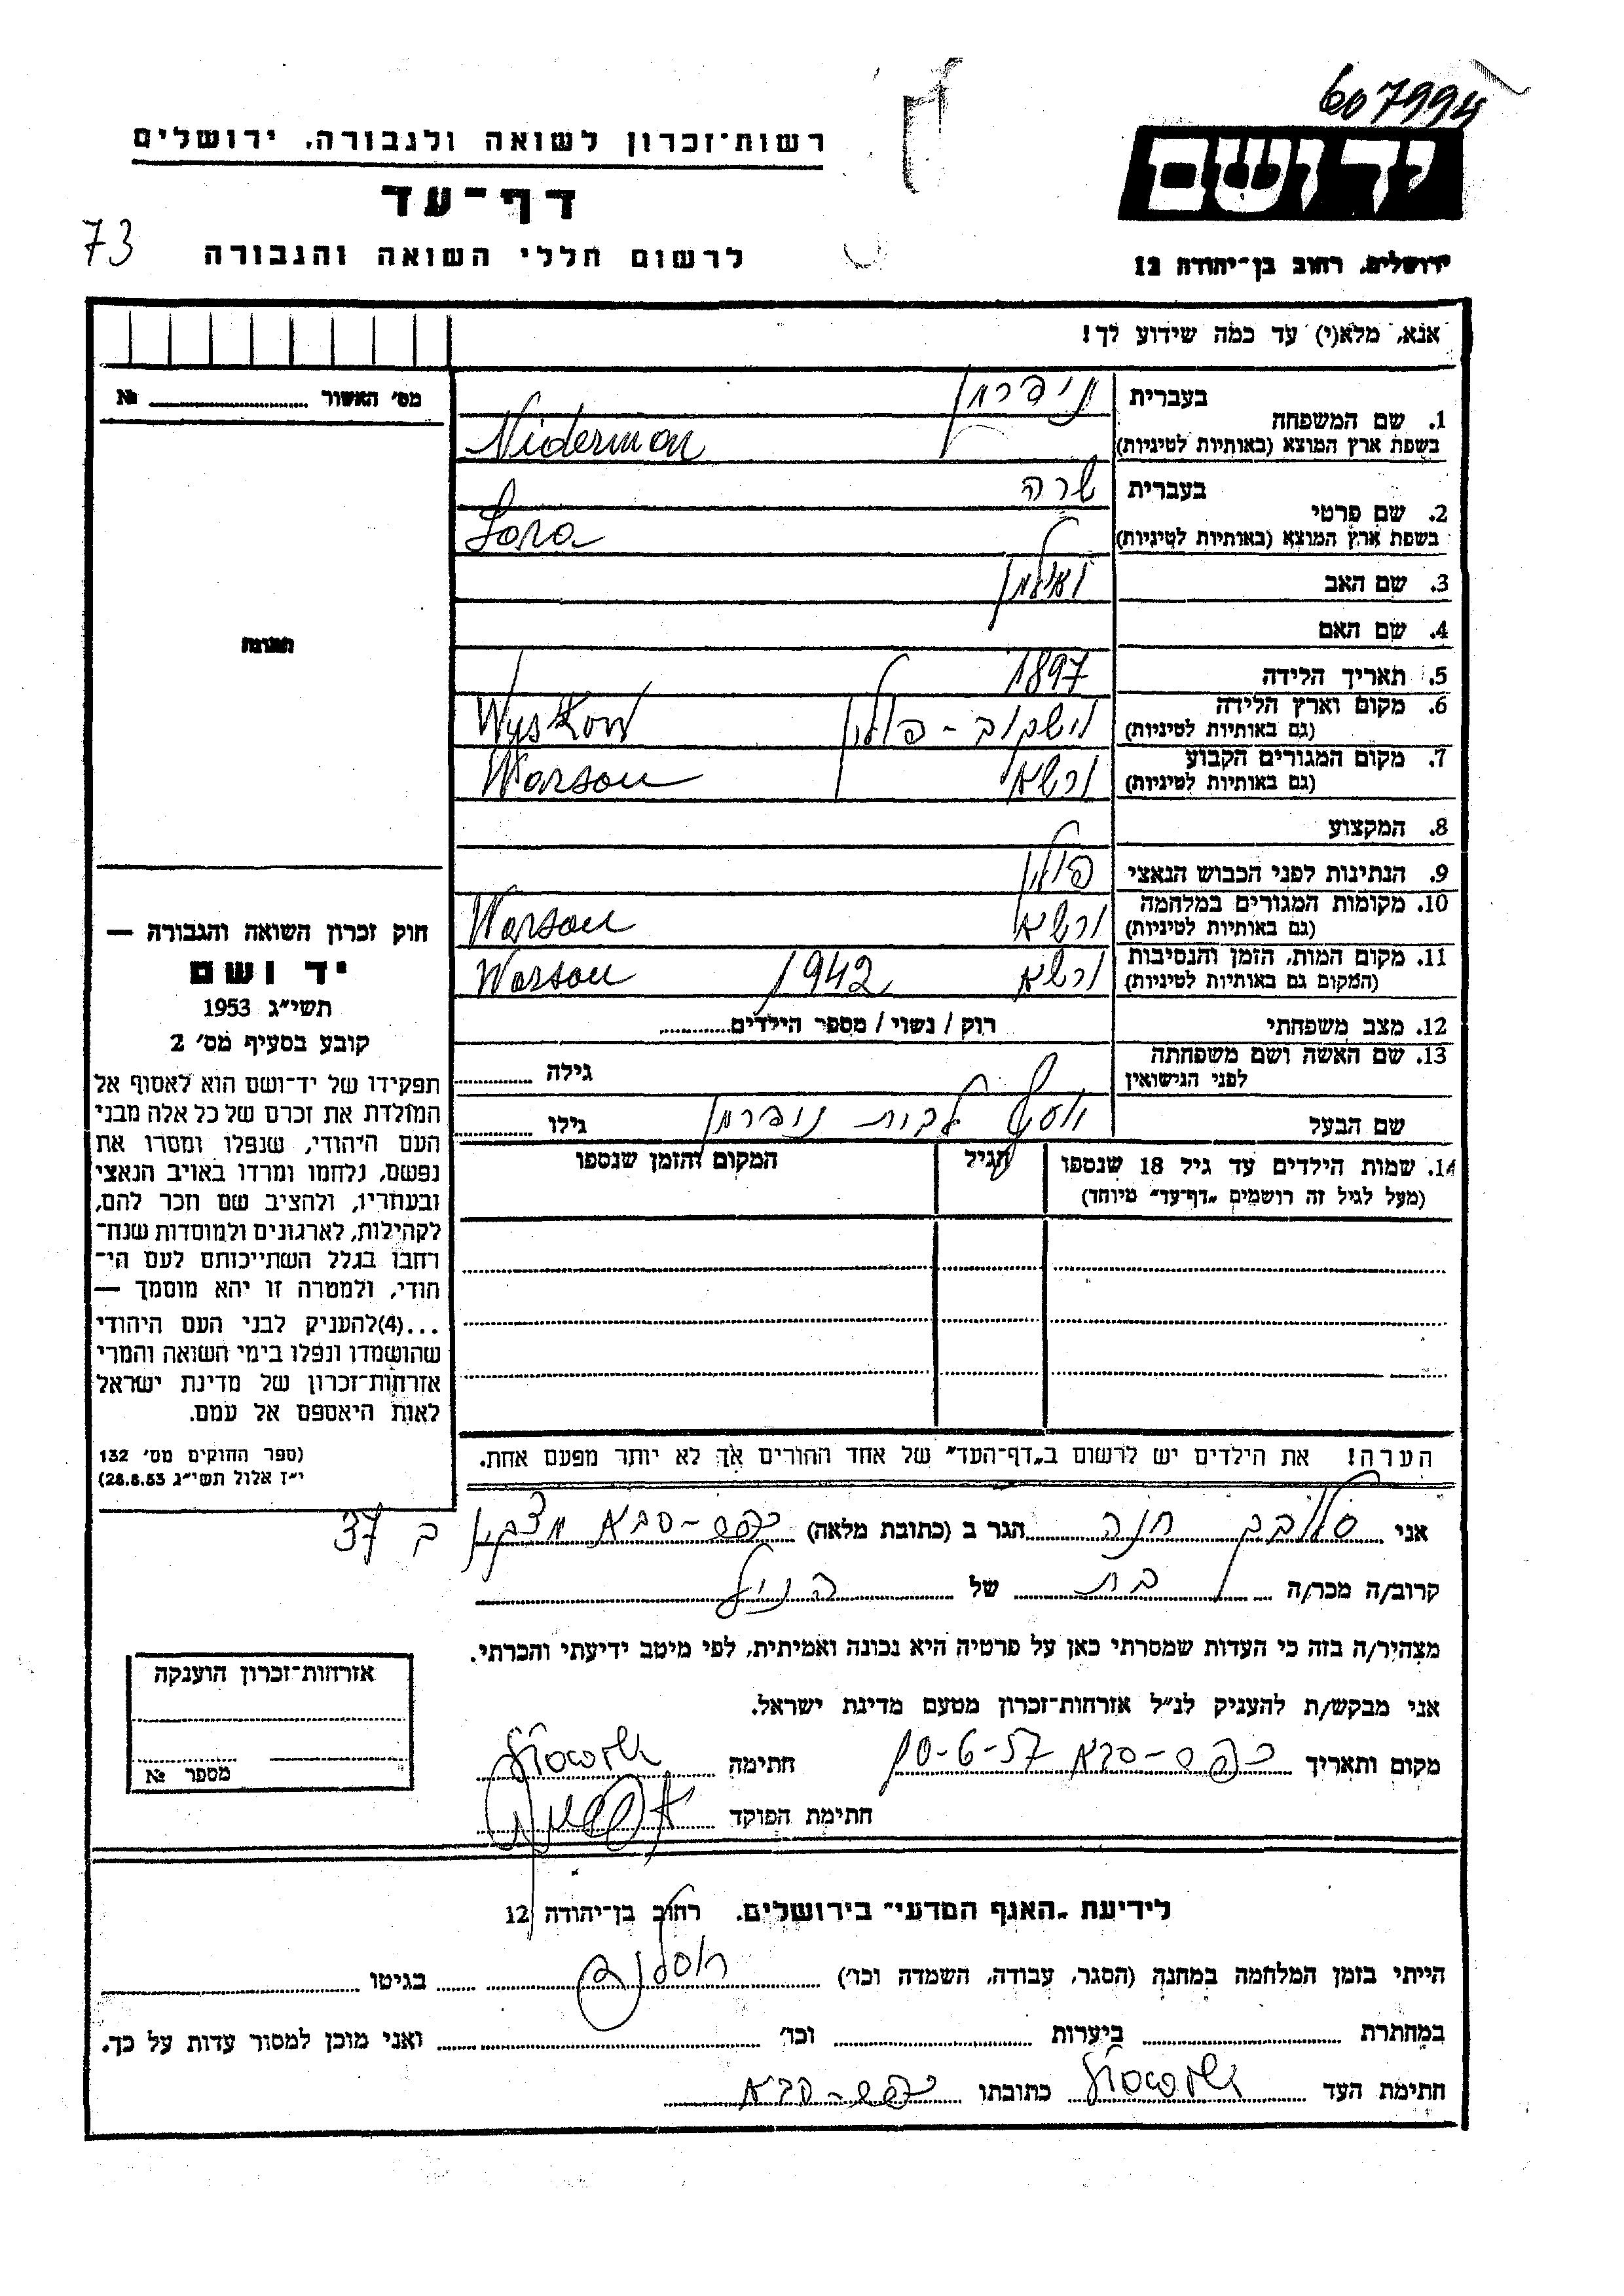 607994
יד ושם
ירושלים, רחוב בן־יהודה 12
רשות־זכרון לשואה ולגבורה, ירושלים
דף־עד
לרשום חללי השואה והגבורה
73
אנא, מלא(י) עד כמה שידוע לך!
מס׳ האשור № 
1. שם המשפחה
בעברית ניידרמן
בשפת ארץ המוצא (באותיות לטיניות) Niderman
2. שם פרטי
בעברית שרה
בשפת ארץ המוצא (באותיות לטיניות) Sara
3. שם האב
4. שם האם
5. תאריך הלידה 1897
6. מקום וארץ הלידה
(גם באותיות לטיניות) וישקוב - פולין Wyszkow
7. מקום המגורים הקבוע
(גם באותיות לטיניות) ורשא Warsau
8. המקצוע
9. הנתינות לפני הכבוש הנאצי פולין
10. מקומות המגורים במלחמה
(גם באותיות לטיניות) ורשא Warsau
11. מקום המות, הזמן והנסיבות
(המקום גם באותיות לטיניות) ורשא 1942 Warsau
12. מצב משפחתי רוק / נשוי / מספר הילדים
13. שם האשה ושם משפחתה
לפני הנישואין גילה
שם הבעל לבית נידרמן גילו
14. שמות הילדים עד גיל 18 שנספו
(מעל לגיל זה רושמים „דף־עד״ מיוחד)
הגיל
המקום והזמן שנספו
הערה! את הילדים יש לרשום ב„דף־העד״ של אחד ההורים אך לא יותר מפעם אחת.
תמונות
חוק זכרון השואה והגבורה —
יד ושם
תשי״ג 1953
קובע בסעיף מס׳ 2
תפקידו של יד־ושם הוא לאסוף אל
המולדת את זכרם של כל אלה מבני
העם היהודי, שנפלו ומסרו את
נפשם, נלחמו ומרדו באויב הנאצי
ובעוזריו, ולהציב שם וזכר להם,
לקהילות, לארגונים ולמוסדות שנח־
רבו בגלל השתייכותם לעם הי־
הודי, ולמטרה זו יהא מוסמך —
...(4)להעניק לבני העם היהודי
שהושמדו ונפלו בימי השואה והמרי
אזרחות־זכרון של מדינת ישראל
לאות היאספם אל עמם.
(ספר החוקים מס׳ 132
י״ז אלול תשי״ג 28.8.53)
אני חנה הגר ב (כתובת מלאה) כפר-סבא ב 37
קרוב/ה מכר/ה בת של הנ״ל
מצהיר/ה בזה כי העדות שמסרתי כאן על פרטיה היא נכונה ואמיתית, לפי מיטב ידיעתי והכרתי.
אני מבקש/ת להעניק לנ״ל אזרחות־זכרון מטעם מדינת ישראל.
מקום ותאריך כפר-סבא 10-6-57 חתימה
חתימת הפוקד
אזרחות־זכרון הוענקה
מספר №
לידיעת „האגף המדעי״ בירושלים, רחוב בן־יהודה 12
הייתי בזמן המלחמה במחנה (הסגר, עבודה, השמדה וכו׳) בגיטו
במחתרת ביערות וכו׳ ואני מוכן למסור עדות על כך.
חתימת העד כתובתו כפר-סבא